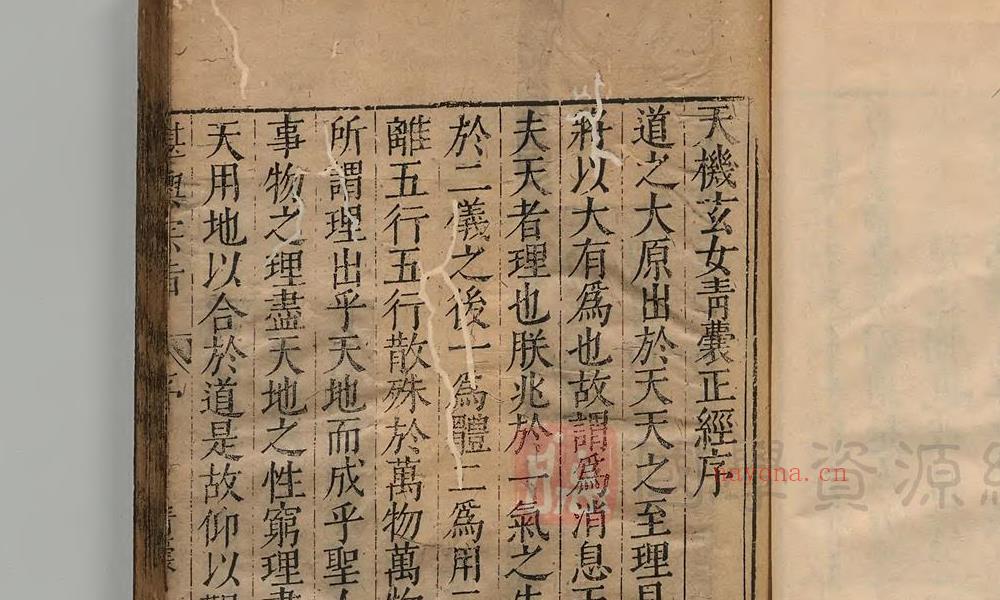 天機玄女青囊正經序
道之大原出於天天之至理具
將以大有爲也故謂爲消息
夫天者理也朕兆於一氣之
於二儀之後一爲體二爲用
離五行五行散殊於萬物萬
所謂理出乎天地而成乎聖
事物之理盡天地之性窮理
天用地以合於道是故仰以
學資源
nayona.cn